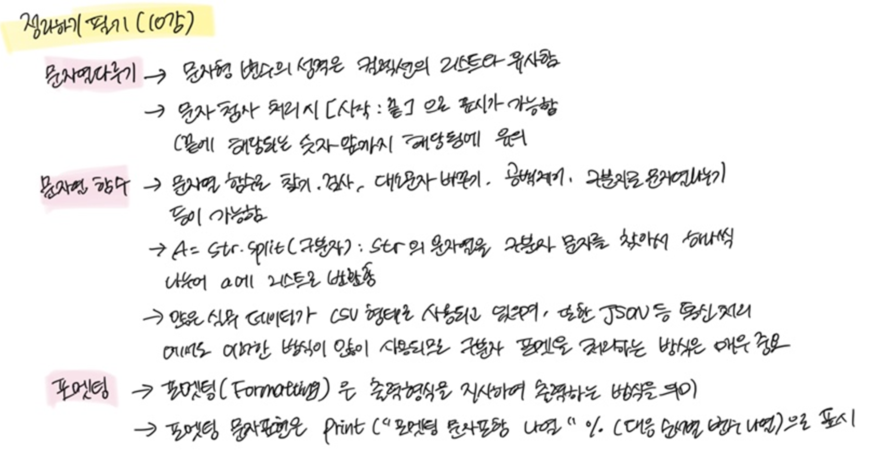 정리하기 필기 (10강)
문자열다루기 → 문자형 변수의 성격은 컬렉션의 리스트와 유사함
→ 문자 첨사 처리시 [시작:끝] 으로 표시가 가능함
(끝에 해당되는 숫자 앞까지 해당됨에 유의
문자열 함수 → 문자열 함수는 찾기, 검사, 대소문자 바꾸기, 공백제거, 구분자로 문자열나누기
등이 가능함
→ A = str.split(구분자) : str의 문자열을 구분자 문자를 찾아서 하나씩
나누어 a에 리스트로 반환함
→ 많은 실무 데이터가 CSV 형태로 사용되고 있으며, 또한 JSON 등 통신 처리
에서도 이러한 방식이 많이 사용되므로 구분자 포맷을 처리하는 방식은 매우 중요
포멧팅 → 포멧팅(Formatting)은 출력형식을 지시하여 출력하는 방식을 의미
→ 포멧팅 문자표현은 print ("포멧팅 문자포함 나열" % (대응 순서별 변수 나열)으로 표시